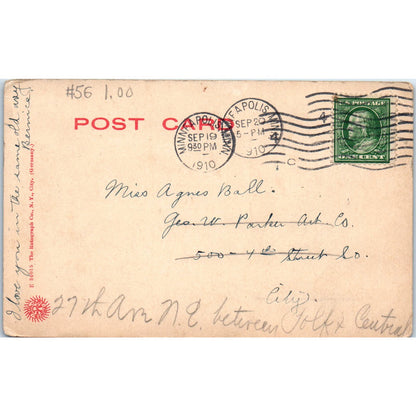 #56 1.00
POST CARD
MINNEAPOLIS, MINN.
SEP 19
9 30 PM
1910
EAPOLIS, MINN.
SEP 20
5-PM
1910
C
U.S. POSTAGE
ONE CENT
Miss Agnes Ball.
Geo. W. Parker Art Co.
500-4th Street So.
City.
27th Ave N.E. between Polk & Central
I love you in the same old way
Bernice.
The Rotograph Co., N. Y. City. (Germany.)